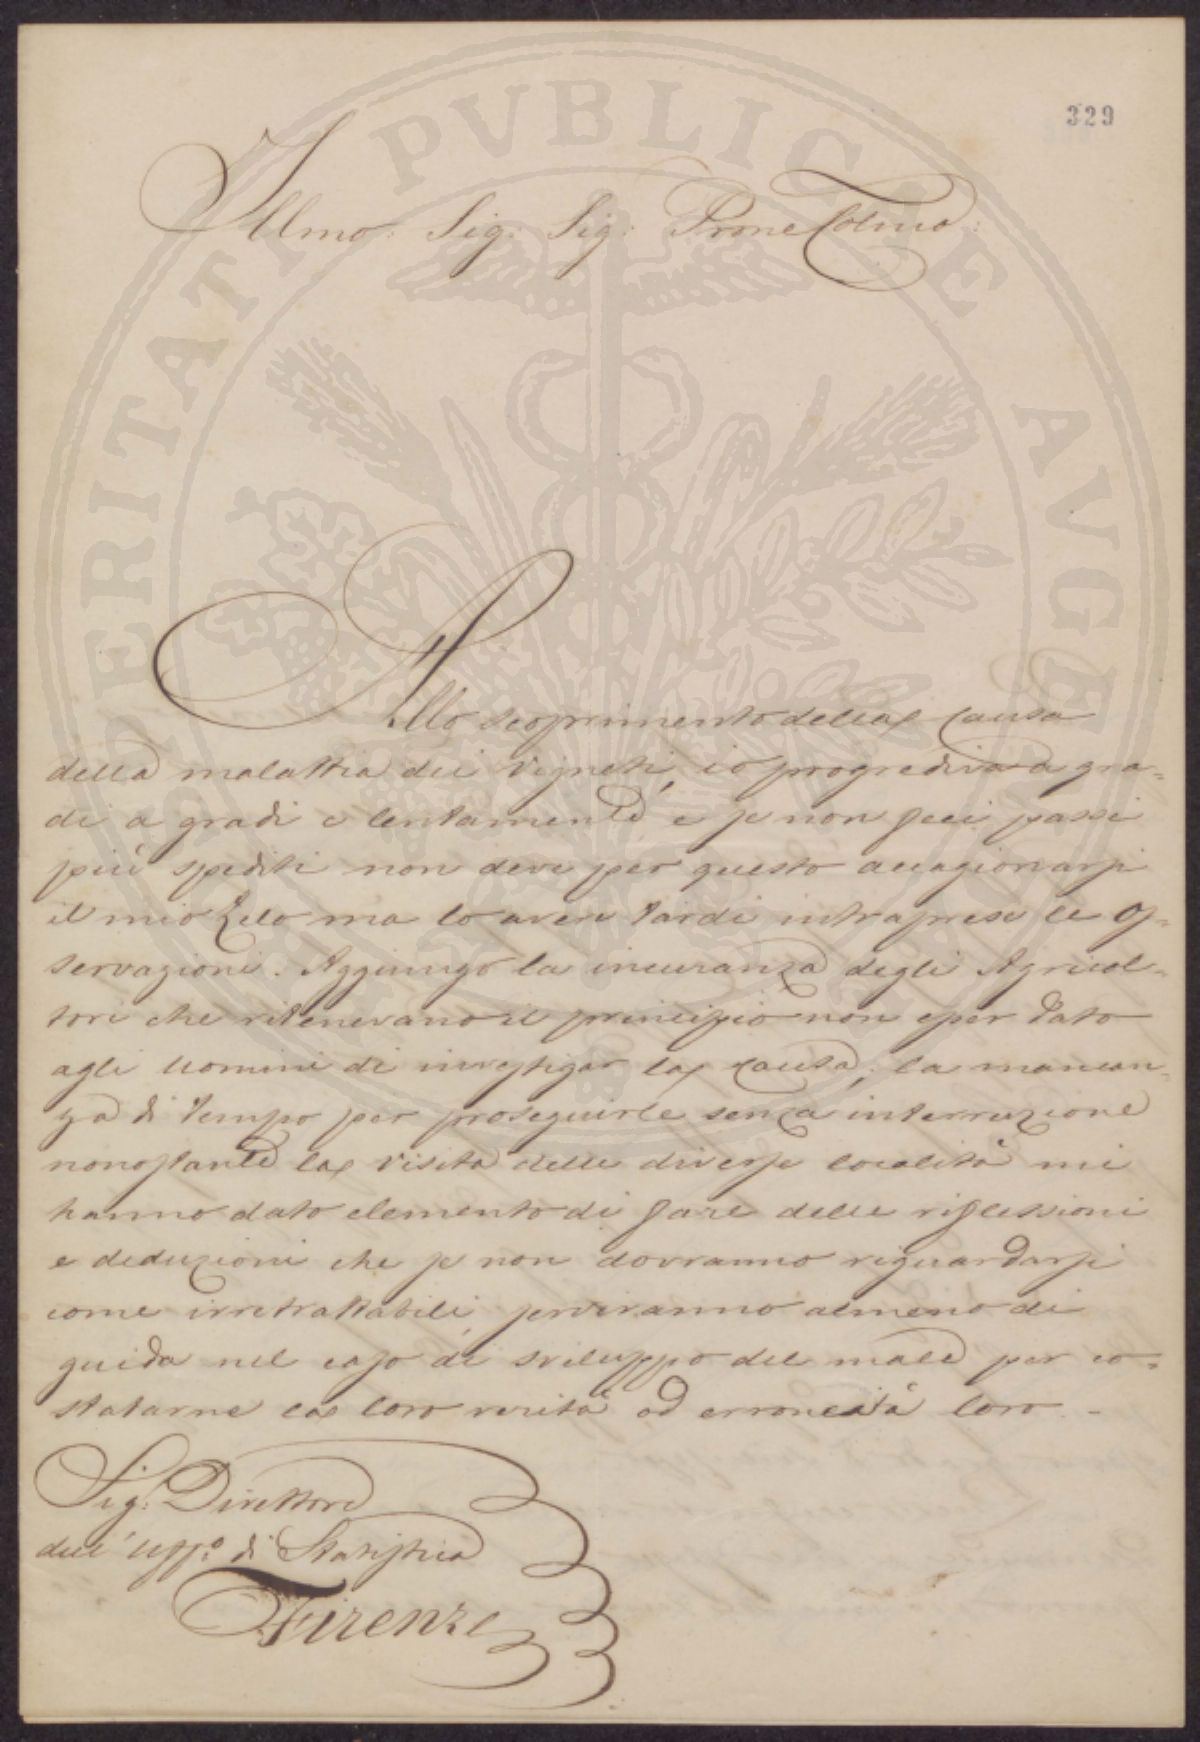 329
Illmo: Sig: Sig: Prone Colmo:
Allo scoprimento della causa
della malattia dei Vigneti, io progrediva a gra=
di a gradi e lentamente, e se non feci passi
più spediti non deve per questo accagionarsi
il mio Zelo ma lo avere tardi intraprese le Os=
servazioni. Aggiungo la incuranza degli Agricol=
tori che ritenevano il principio non esser dato
agli uomini di investigar la causa; la mancan=
za di tempo per proseguirle senza interruzione
nonostante la visita delle diverse località mi
hanno dato elemento di fare delle riflessioni
e deduzioni che se non dovranno riguardarsi
come irretrattabili, serviranno almeno di
guida nel caso di sviluppo del male per co=
statarne la loro verità od erroneità loro. -
Sig: Direttore
dell' Uffo: di Statistica
Firenze
PVBLICAE
AVGE
PERITATI